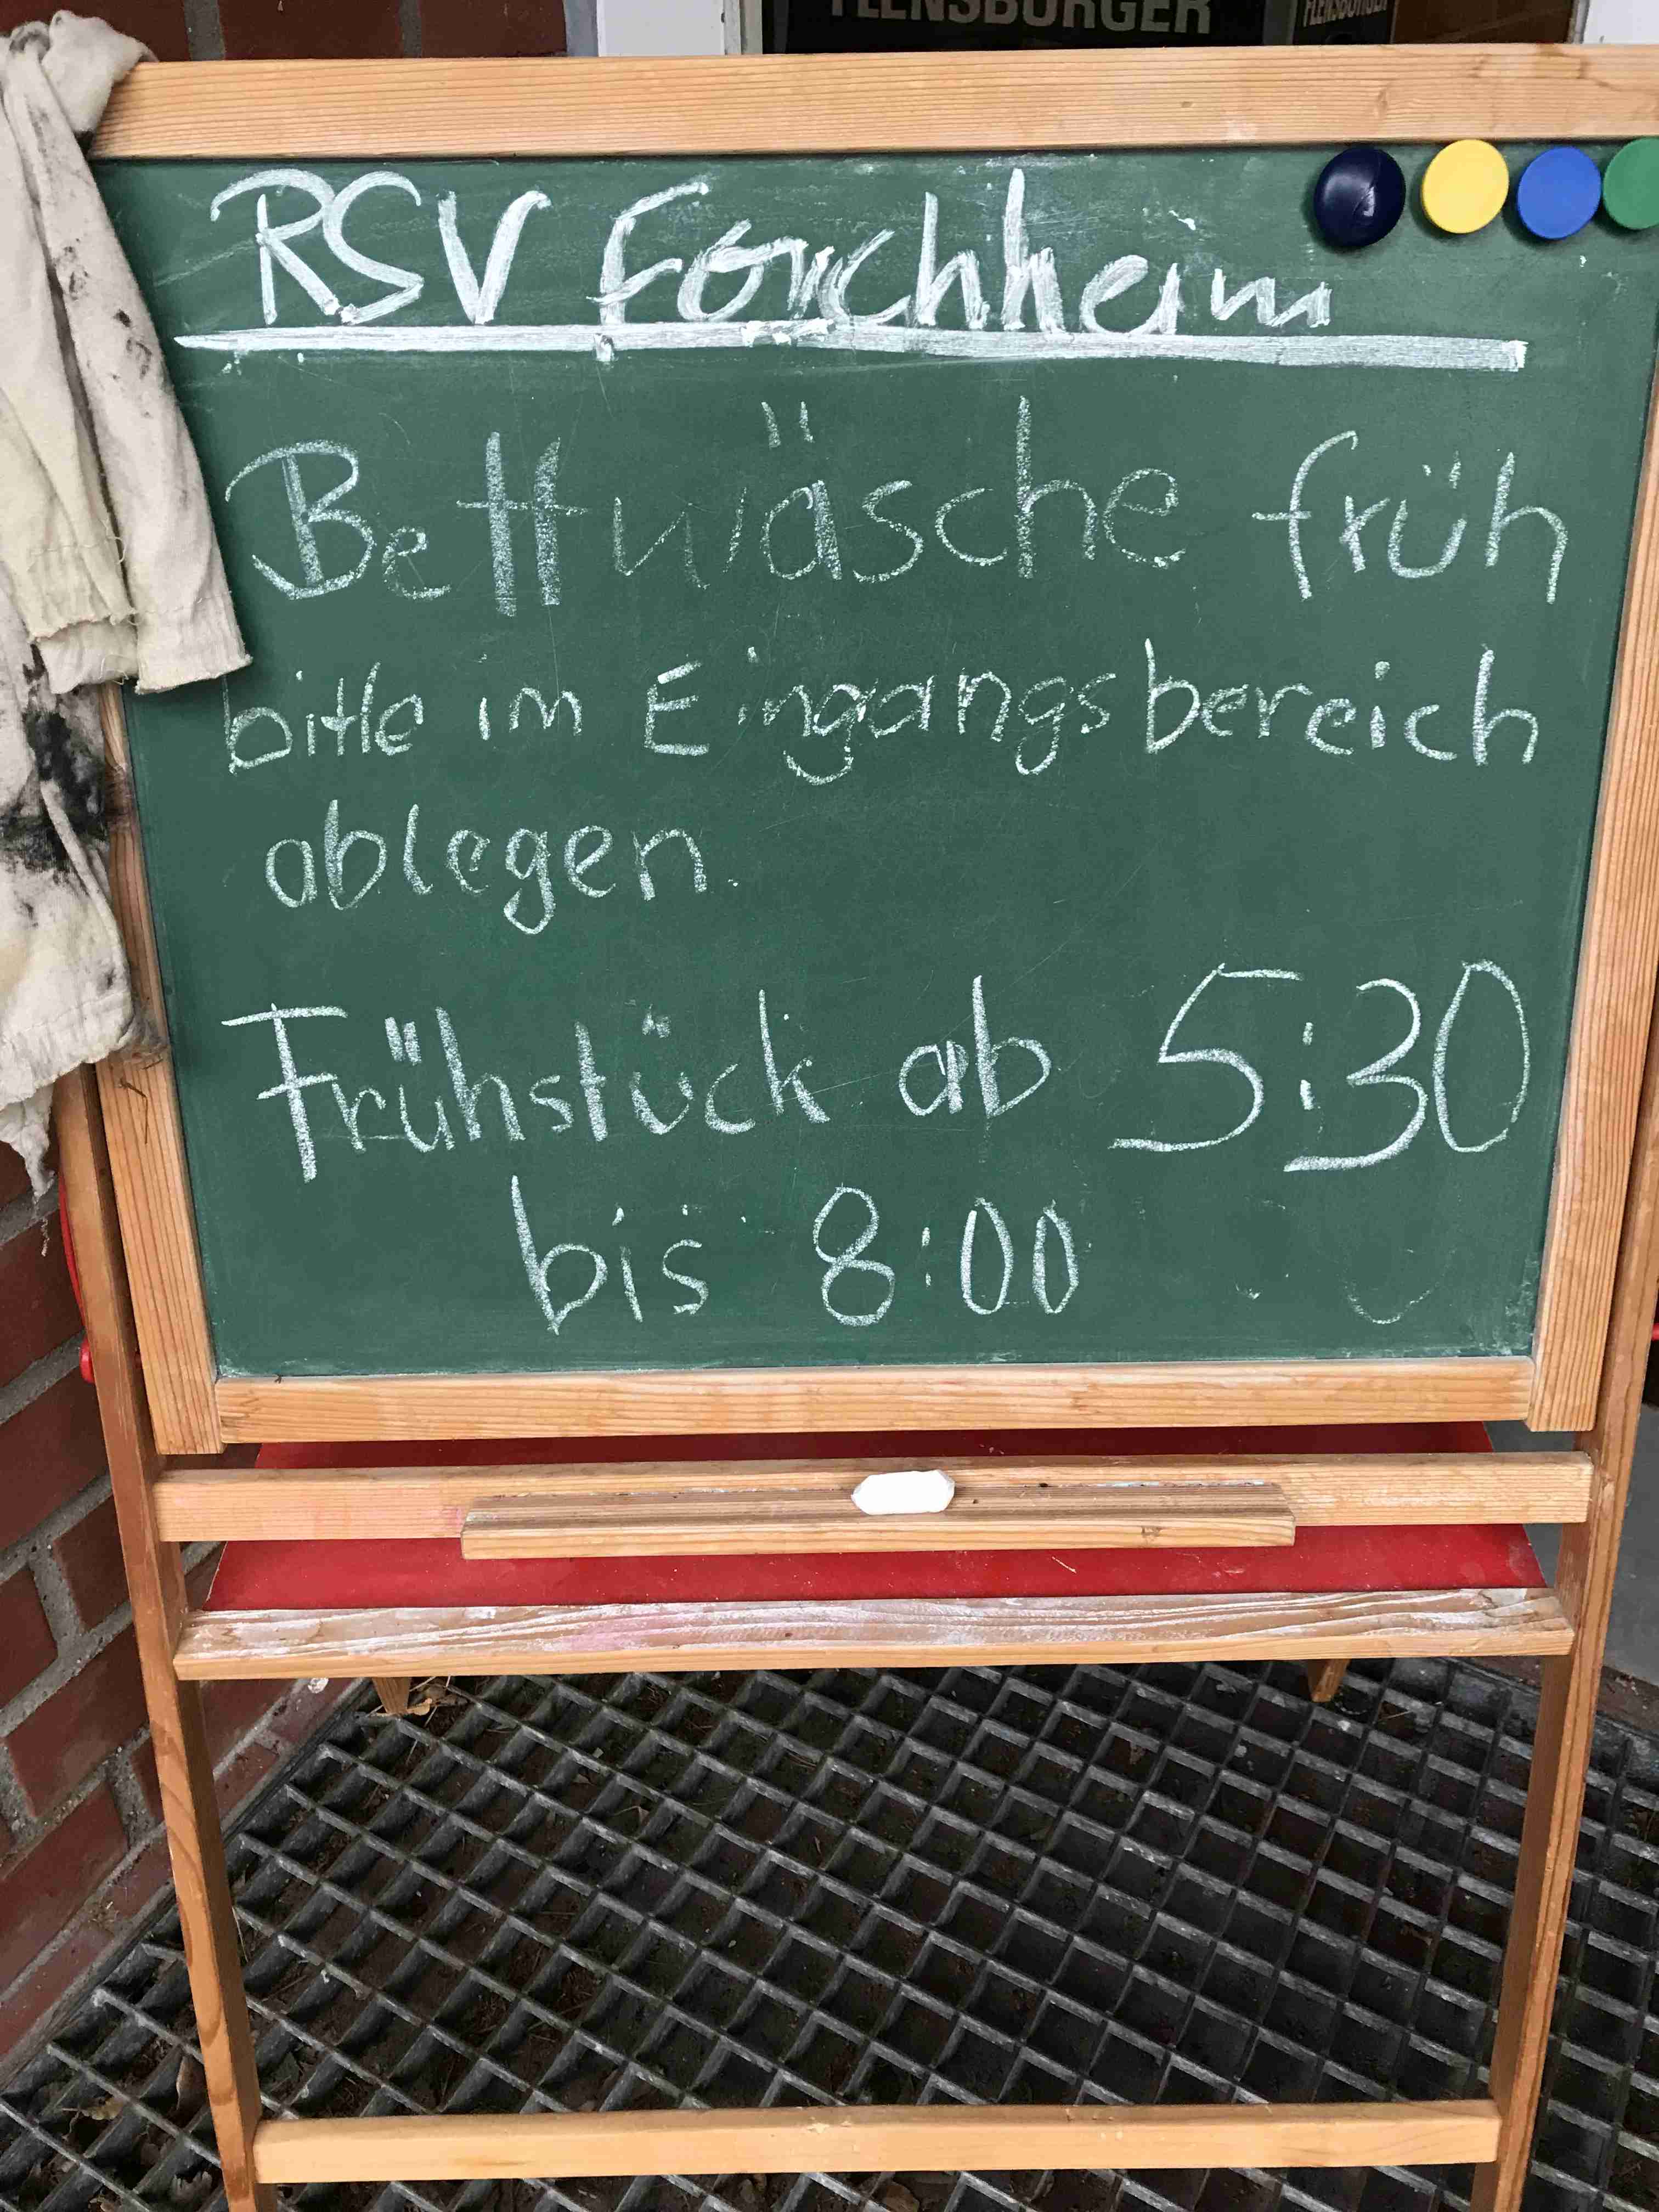 FLENSBURGER FLENSBURGER
RSV Forchheim
Bettwäsche früh
bitte im Eingangsbereich
ablegen.
Frühstück ab 5:30
bis 8:00